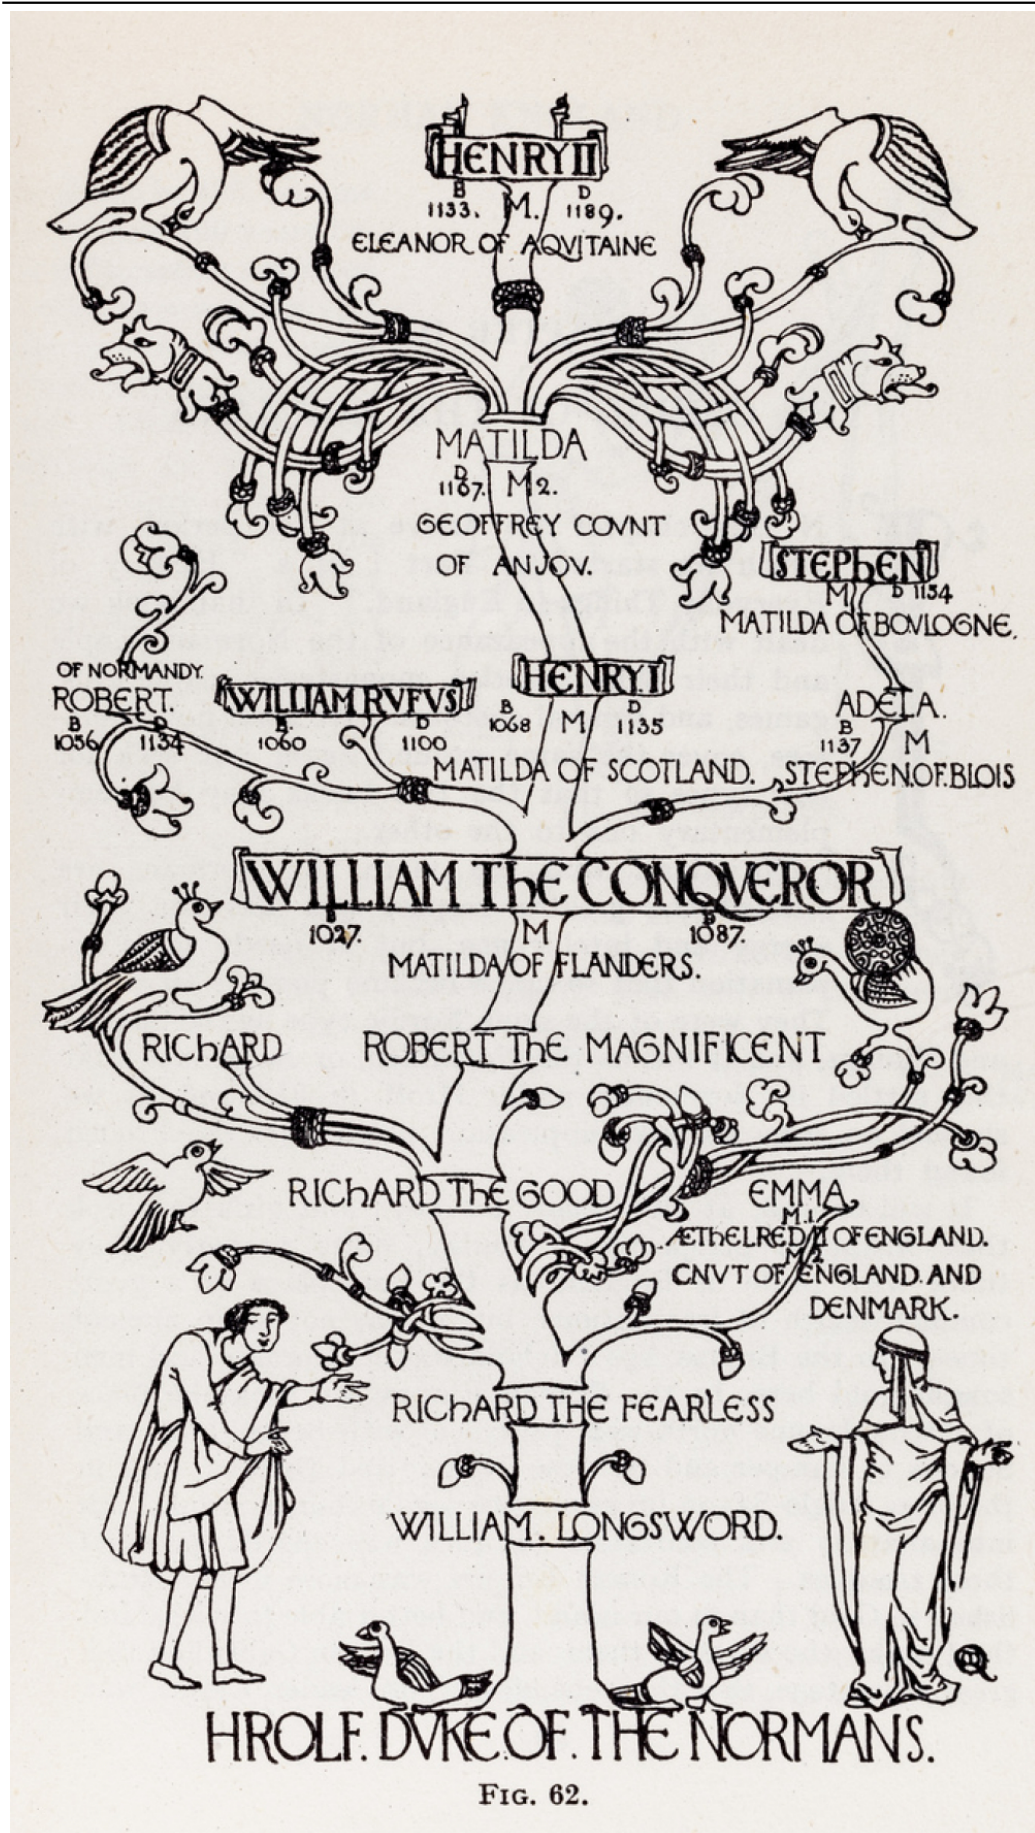 HENRY II
B D
1133. M. 1189.
ELEANOR OF AQVITAINE
MATILDA
D
1167. M2.
GEOFFREY COVNT
OF ANJOV.
STEPhEN
M D 1154
MATILDA OF BOVLOGNE.
OF NORMANDY.
ROBERT.
B D
1056 1134
WILLIAM RVFVS
B. D
1060 1100
HENRY.I
B D
1068 M 1135
MATILDA OF SCOTLAND.
ADELA.
B
1137 M
STEPhEN.OF.BLOIS
WILLIAM ThE CONQVEROR
1027. M D 1087.
MATILDA OF FLANDERS.
RIChARD
ROBERT ThE MAGNIFICENT
RIChARD ThE GOOD
EMMA
M.1
ÆThELRED II OF ENGLAND.
M.2
CNVT OF ENGLAND. AND
DENMARK.
RIChARD THE FEARLESS
WILLIAM. LONGSWORD.
HROLF. DVKE. OF. THE NORMANS.
FIG. 62.